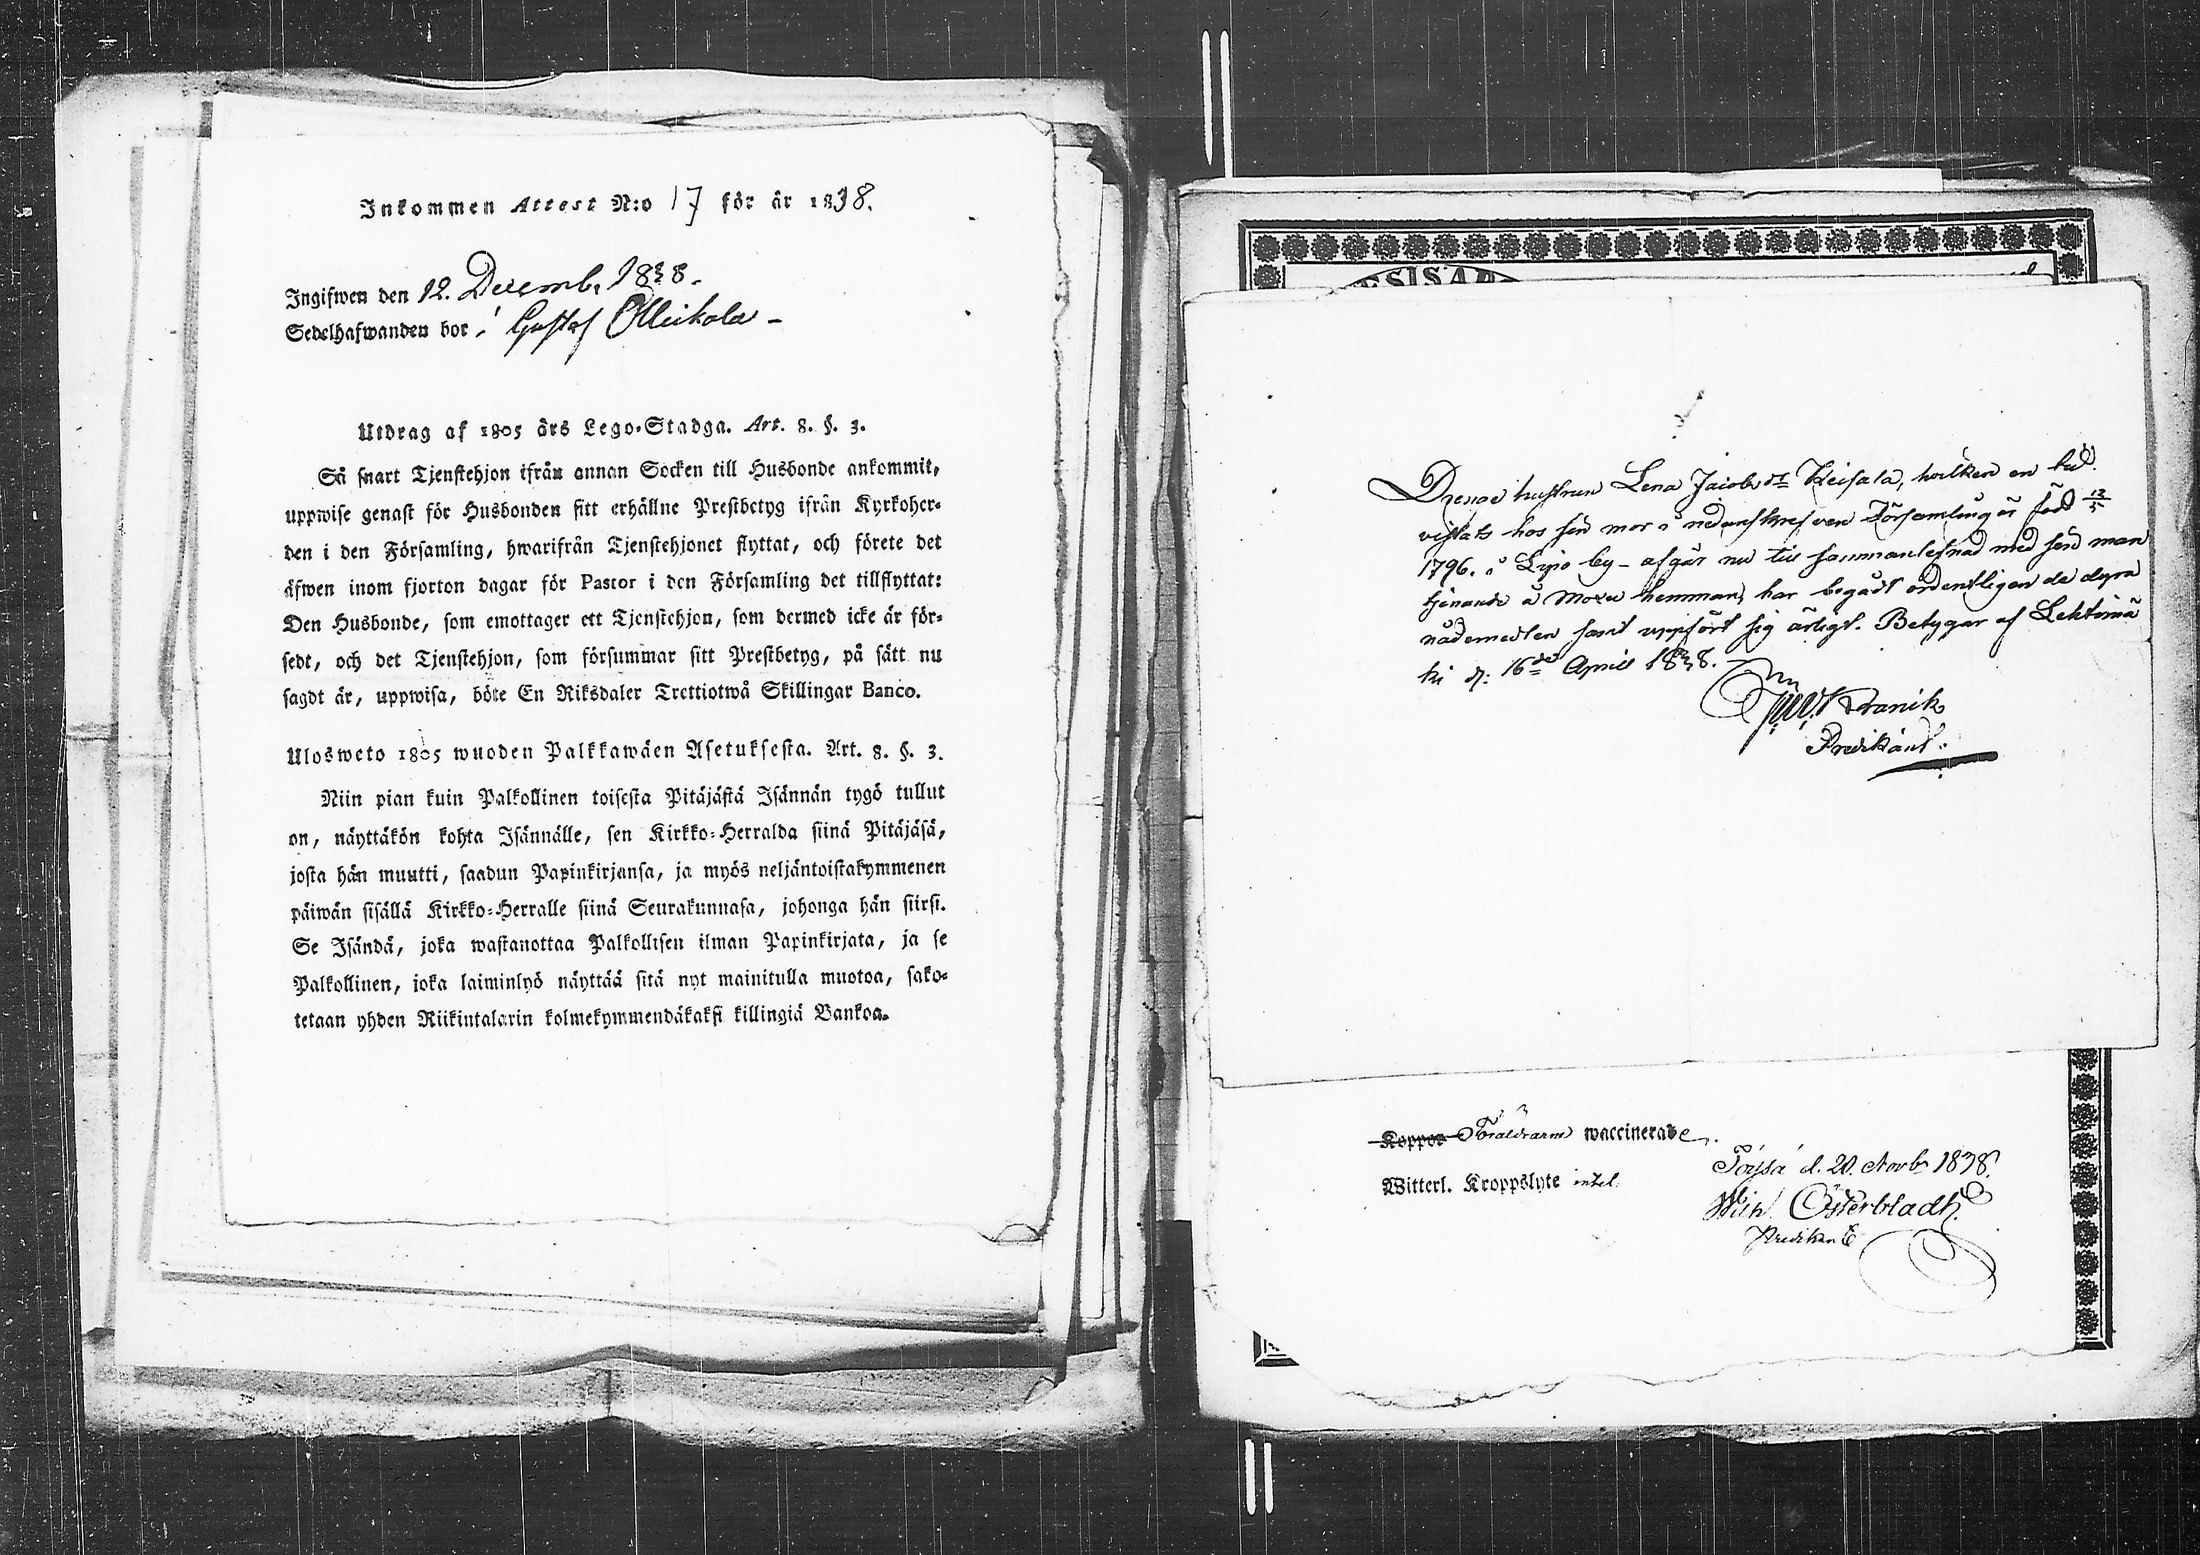 Inkommen Attest N:o 17 för år 1838.
Ingifwen den 12. Decemb. 1838.
Sedelhafwanden bor i Gustaf Ollikala -
Utdrag af 1805 års Lego-Stadga. Art. 8. §. 3.
Så snart Tjenstehjon ifrån annan Socken till Husbonde ankommit,
uppwise genast för Husbonden sitt erhållne Prestbetyg ifrån Kyrkoher-
den i den Församling, hwarifrån Tjenstehjonet flyttat, och förete det
äfwen inom fjorton dagar för Pastor i den Församling det tillflyttat:
Den Husbonde, som emottager ett Tjenstehjon, som dermed icke är för-
sedt, och det Tjenstehjon, som försummar sitt Prestbetyg, på sätt nu
sagdt är, uppwisa, böte En Riksdaler Trettiotwå Skillingar Banco.
Ulosweto 1805 wuoden Palkkawäen Asetuksesta. Art. 8. §. 3.
Niin pian kuin Palkollinen toisesta Pitäjästä Isännän tygö tullut
on, näyttäkön kohta Isännälle, sen Kirkko-Herralda siinä Pitäjäsä,
josta hän muutti, saadun Papinkirjansa, ja myös neljäntoistakymmenen
päiwän sisällä Kirkko-Herralle siinä Seurakunnasa, johonga hän siirsi.
Se Isändä, joka wastanottaa Palkollisen ilman Papinkirjata, ja se
Palkollinen, joka laiminlyö näyttää sitä nyt mainitulla muotoa, sako-
tetaan yhden Riikintalarin kolmekymmendäkaksi killingiä Bankoa.
ESISAR
Drenge hustrun Lena Jacobs dr Keisala, hvilken en tid
vistats hos sin mor i nedanskrefven Församling är född 12/5
1796. i Lipo by - afgår nu till sammanlefnad med sin man
tjenande å Moxu hemman, har begådt ordentligen de dyra
nådemedlen samt uppfört sig ärligt. Betygar af Lehtimä
ki d: 16de April 1838.
Franik
Predikant.
Koppor Föräldrarne waccinerade.
Witterl. Kroppslyte intet
Töysä d. 20. Novbr 1838.
Wilh. Österbladh
Predikant